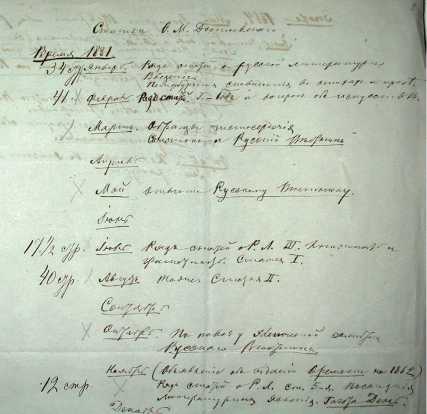 Статьи Ѳ. М. Достоевскаго
Время 1861
34 стр Январь Рядъ статей о русской литературѣ
Введеніе
Петербургскія сновидѣнія въ стихахъ и прозѣ
41. Февраль Рядъ статей Г. -бовъ и вопросъ объ искусствѣ
Мартъ. Образцы чистосердечія
Русскій Вѣстникъ
Апрѣль
Май Русскому Вѣстнику.
Іюнь
17 1/2 стр. Іюль Рядъ статей о Р. Л. III. Книжность и
грамотность. Статья I.
40 стр Августъ Тоже Статья II.
Сентябрь
Октябрь. По поводу замѣтки
Русскаго Вѣстника
12 стр. Ноябрь (Объявленіе объ изданіи Времени на 1862)
Рядъ статей о Р. Л. ст. 5-я. Послѣднія
Литературныя явленія. Газета День
Декабрь